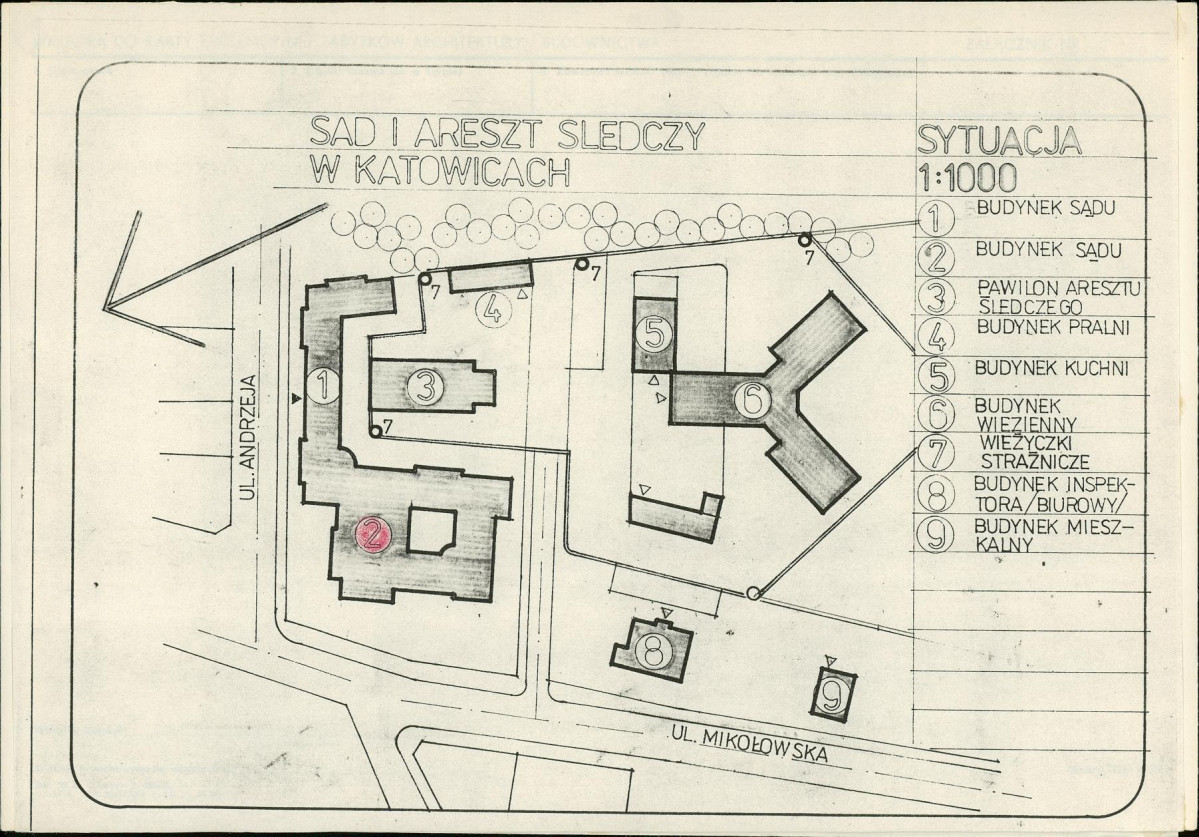 SĄD I ARESZT ŚLEDCZY
W KATOWICACH
SYTUACJA
1:1000
1 BUDYNEK SĄDU
2 BUDYNEK SĄDU
3 PAWILON ARESZTU
ŚLEDCZEGO
4 BUDYNEK PRALNI
5 BUDYNEK KUCHNI
6 BUDYNEK
WIĘZIENNY
7 WIEŻYCZKI
STRAŻNICZE
8 BUDYNEK INSPEK-
TORA/BIUROWY/
9 BUDYNEK MIESZ-
KALNY
7
7
7
4
5
1
3
6
7
UL. ANDRZEJA
2
8
9
UL. MIKOŁOWSKA